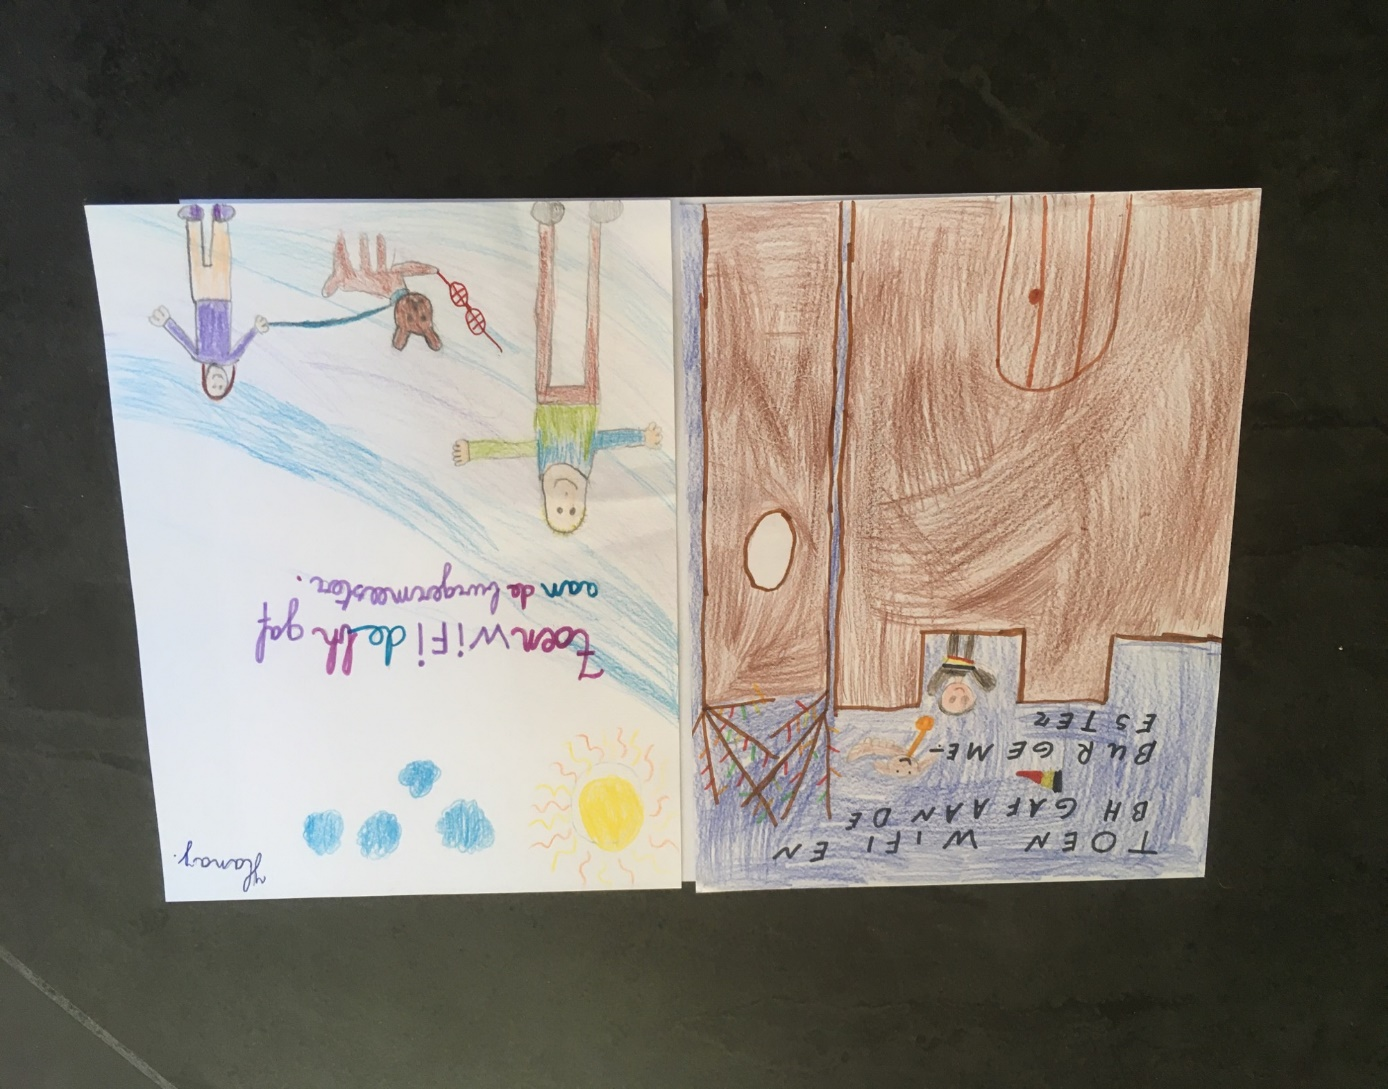 TOEN WIFI EN
BH GAF AAN DE
BURGEME-
ESTER
Hanay.
Toen WiFi de bh gaf
aan de burgermeester.